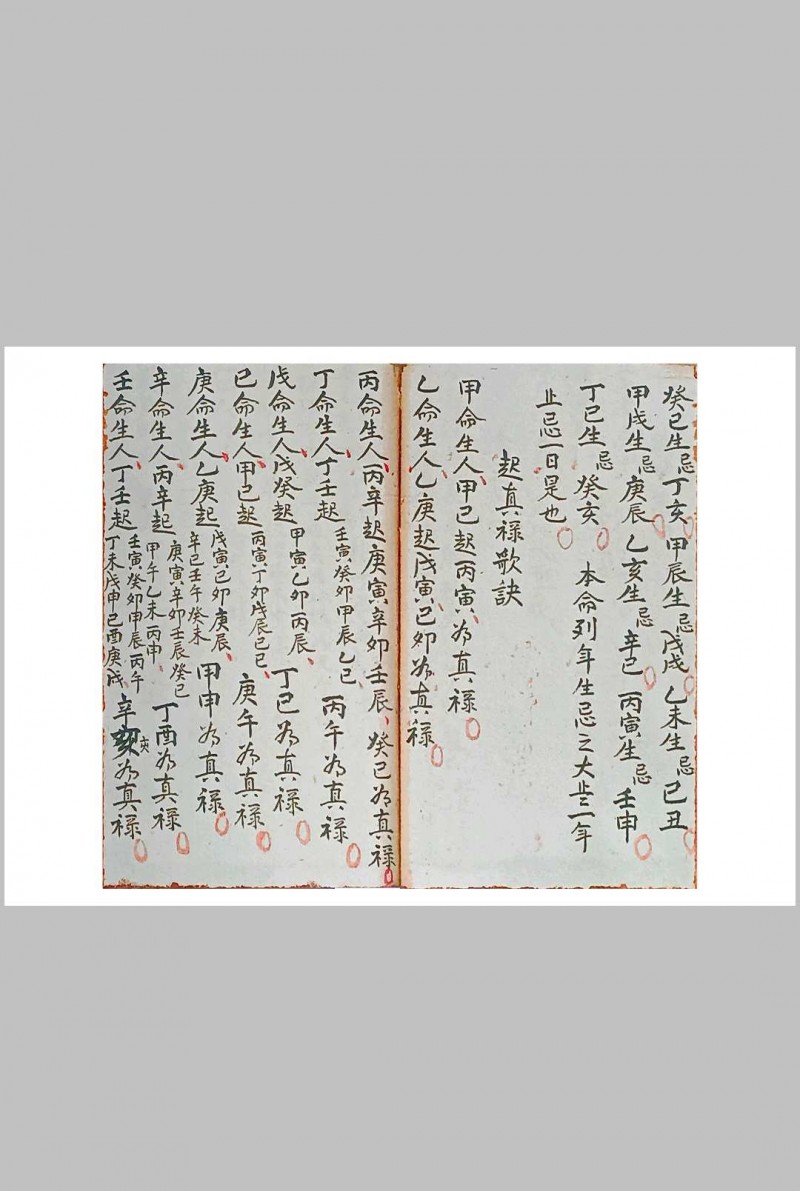 癸巳生忌丁亥 甲辰生忌戊戌 乙未生忌己丑
甲戌生忌庚辰 乙亥生忌辛巳 丙寅生忌壬申
丁巳生忌癸亥 本命列年生忌之大
止忌一日是也
起真禄歌訣
甲命生人甲己起丙寅為真禄
乙命生人乙庚起戊寅己卯為真禄
丙命生人丙辛起庚寅辛卯壬辰癸巳為真禄
丁命生人丁壬起壬寅癸卯甲辰乙巳 丙午為真禄
戊命生人戊癸起甲寅乙卯丙辰 丁巳為真禄
己命生人甲己起丙寅丁卯戊辰己巳 庚午為真禄
庚命生人乙庚起戊寅己卯庚辰辛巳壬午癸未 甲申為真禄
辛命生人丙辛起庚寅辛卯壬辰癸巳甲午乙未丙申 丁酉為真禄
壬命生人丁壬起壬寅癸卯甲辰丙午丁未戊申己酉庚戌 辛亥亥為真禄